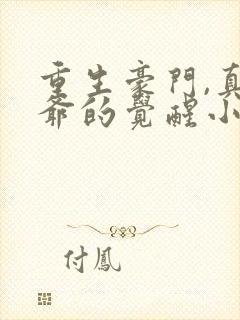 重生豪門,真
爺的覺醒小
付鳳